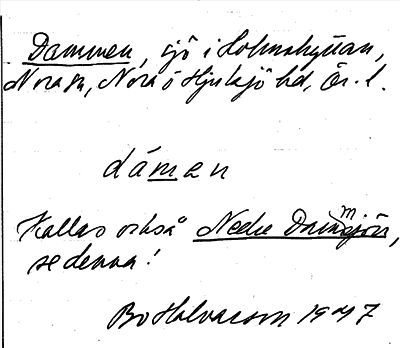 Dammen, sjö i Holmshyttan,
Nora sn, Nora o Hjulsjö hd, Ör. l.
dámen
Kallas också Nedre Dammsjön,
se denna!
Bo Halvarson 1947